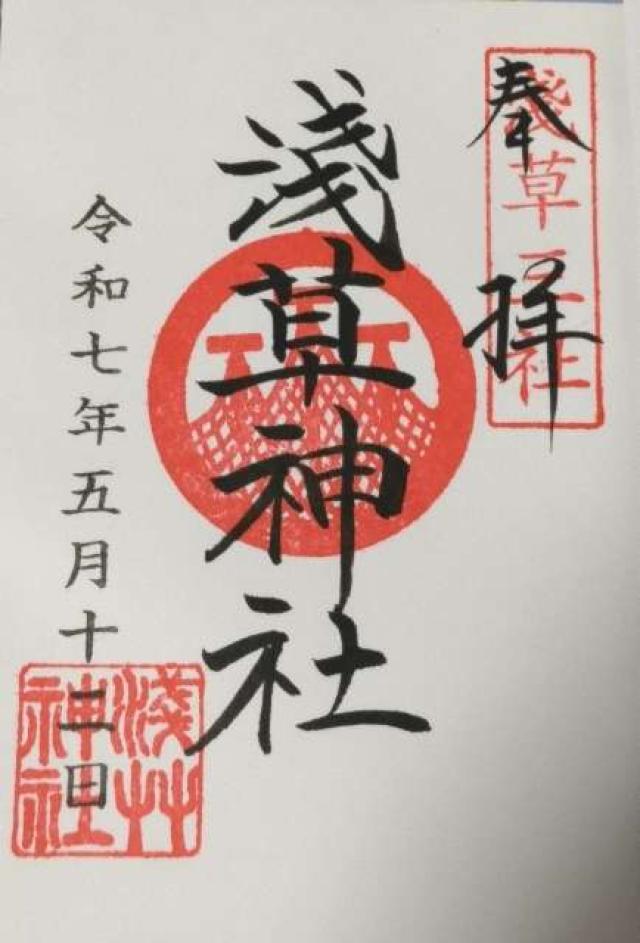 奉拝
淺草三社
淺草神社
令和七年五月十二日
淺草
神社